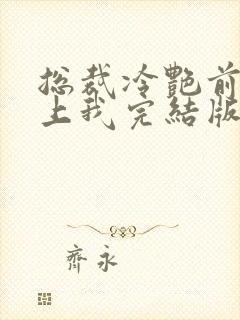 总裁冷艷前
上我完結版
齊永